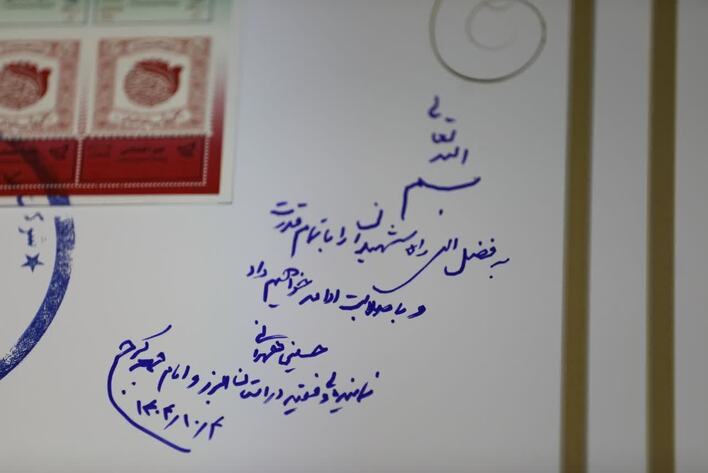 بسم الله تعالی
به فضل الهی راه شهیدان را با تمام قدرت
و با صلابت ادامه خواهیم داد
حسینی همدانی
نماینده ولی فقیه در استان البرز و امام جمعه کرج
۱۴۰۴/۱۰/۴